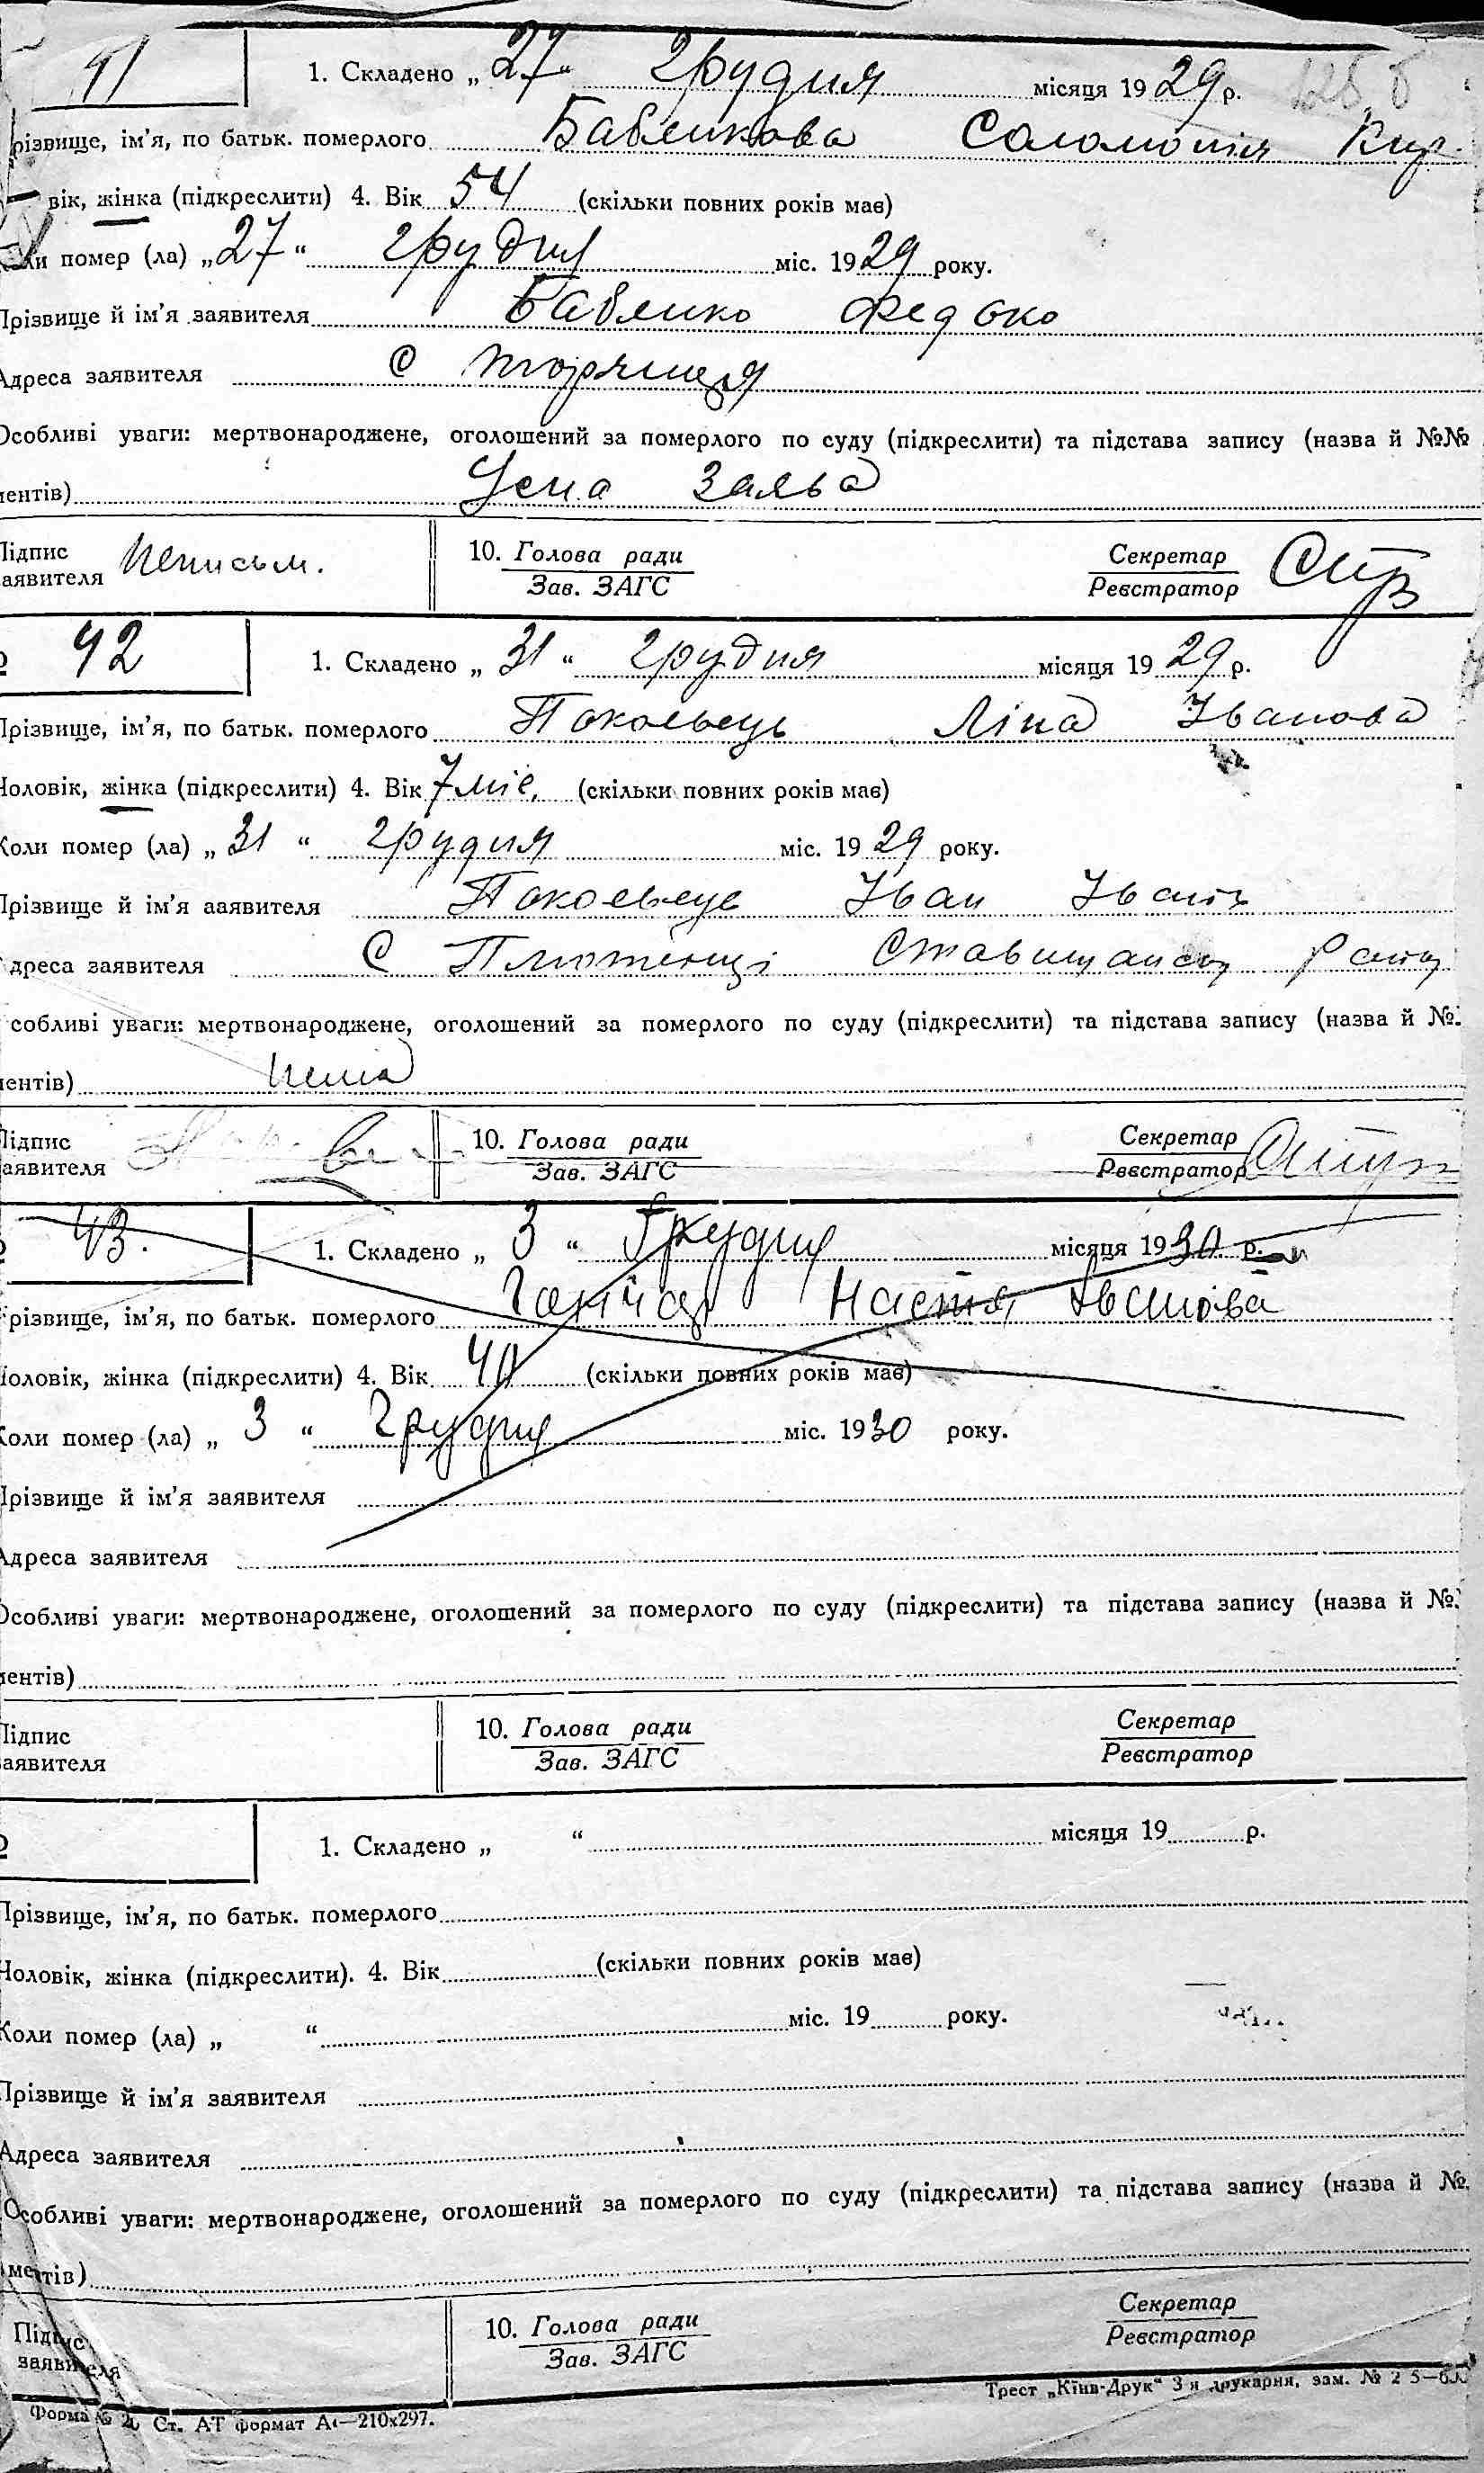 41
1. Складено „ 27 “ грудня місяця 19 29 р.
різвище, ім’я, по батьк. померлого Бабенкова Соломонія Кир.
вік, жінка (підкреслити) 4. Вік 54 (скільки повних років має)
Коли помер (ла) „ 27 “ грудня міс. 19 29 року.
Прізвище й ім’я заявителя Бабенко Федько
Адреса заявителя С Торчиця
Особливі уваги: мертвонароджене, оголошений за померлого по суду (підкреслити) та підстава запису (назва й №№
ментів) Усна заява
Підпис заявителя Неписьм. 10. Голова ради Зав. ЗАГС Секретар Реєстратор
42
1. Складено „ 31 “ грудня місяця 19 29 р.
Прізвище, ім’я, по батьк. померлого Ліна Іванова
Чоловік, жінка (підкреслити) 4. Вік 7 міс. (скільки повних років має)
Коли помер (ла) „ 31 “ грудня міс. 19 29 року.
Прізвище й ім’я ааявителя Іван Іван
дреса заявителя С
собливі уваги: мертвонароджене, оголошений за померлого по суду (підкреслити) та підстава запису (назва й №
ментів) нема
Підпис заявителя 10. Голова ради Зав. ЗАГС Секретар Реєстратор
43.
1. Складено „ 3 “ Грудня місяця 19 30 р.
різвище, ім’я, по батьк. померлого Ганчар Настя Іванова
Чоловік, жінка (підкреслити) 4. Вік 40 (скільки повних років має)
Коли помер (ла) „ 3 “ Грудня міс. 19 30 року.
Прізвище й ім’я заявителя
Адреса заявителя
Особливі уваги: мертвонароджене, оголошений за померлого по суду (підкреслити) та підстава запису (назва й №
ментів)
Підпис заявителя 10. Голова ради Зав. ЗАГС Секретар Реєстратор
1. Складено „ “ місяця 19 р.
Прізвище, ім’я, по батьк. померлого
Чоловік, жінка (підкреслити). 4. Вік (скільки повних років має)
Коли помер (ла) „ “ міс. 19 року.
Прізвище й ім’я заявителя
Адреса заявителя
Особливі уваги: мертвонароджене, оголошений за померлого по суду (підкреслити) та підстава запису (назва й №
ментів)
Підпис заявителя 10. Голова ради Зав. ЗАГС Секретар Реєстратор
Форма № 2, Ст. АТ формат А4—210x297. Трест „Київ-Друк“ 3 я друкарня, зам. №